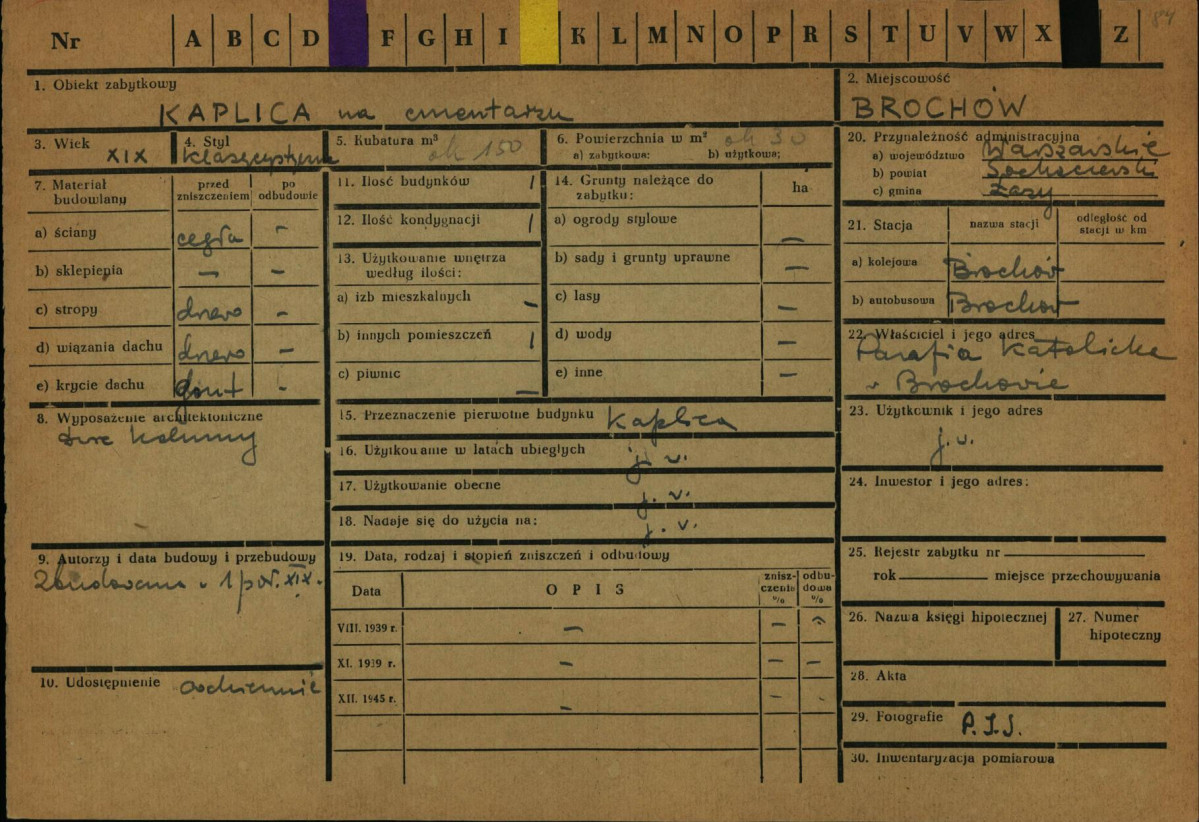 Nr A B C D F G H I K L M N O P R S T U V W X Z 84
1. Obiekt zabytkowy
KAPLICA na cmentarzu
2. Miejscowość
BROCHÓW
3. Wiek
XIX
4. Styl
klasycystyczna
5. Kubatura m³
ok 150
6. Powierzchnia w m² ok 30
a) zabytkowa: b) użytkowa:
20. Przynależność administracyjna
a) województwo Warszawskie
b) powiat Sochaczewski
c) gmina Łazy
7. Materiał budowlany
przed zniszczeniem
po odbudowie
a) ściany cegła -
b) sklepienia - -
c) stropy drzewo -
d) wiązania dachu drzewo -
e) krycie dachu gont -
11. Ilość budynków 1
12. Ilość kondygnacji 1
13. Użytkowanie wnętrza
według ilości:
a) izb mieszkalnych -
b) innych pomieszczeń 1
c) piwnic -
14. Grunty należące do
zabytku: ha
a) ogrody stylowe -
b) sady i grunty uprawne -
c) lasy -
d) wody -
e) inne -
21. Stacja
nazwa stacji
odległość od
stacji w km
a) kolejowa Brochów
b) autobusowa Brochów
22. Właściciel i jego adres
Parafia Katolicka
w Brochowie
8. Wyposażenie architektoniczne
dwie kolumny
15. Przeznaczenie pierwotne budynku Kaplica
16. Użytkowanie w latach ubiegłych j. w.
17. Użytkowanie obecne j. w.
18. Nadaje się do użycia na: j. w.
23. Użytkownik i jego adres
j. w.
24. Inwestor i jego adres:
9. Autorzy i data budowy i przebudowy
Zbudowana w 1 poł. XIX w.
19. Data, rodzaj i stopień zniszczeń i odbudowy
Data
OPIS
znisz-
czenie
%
odbu-
dowa
%
VIII. 1939 r. - - -
XI. 1939 r. - - -
XII. 1945 r. - - -
25. Rejestr zabytku nr
rok miejsce przechowywania
26. Nazwa księgi hipotecznej
27. Numer
hipoteczny
10. Udostępnienie codziennie
28. Akta
29. Fotografie P.I.S.
30. Inwentaryzacja pomiarowa